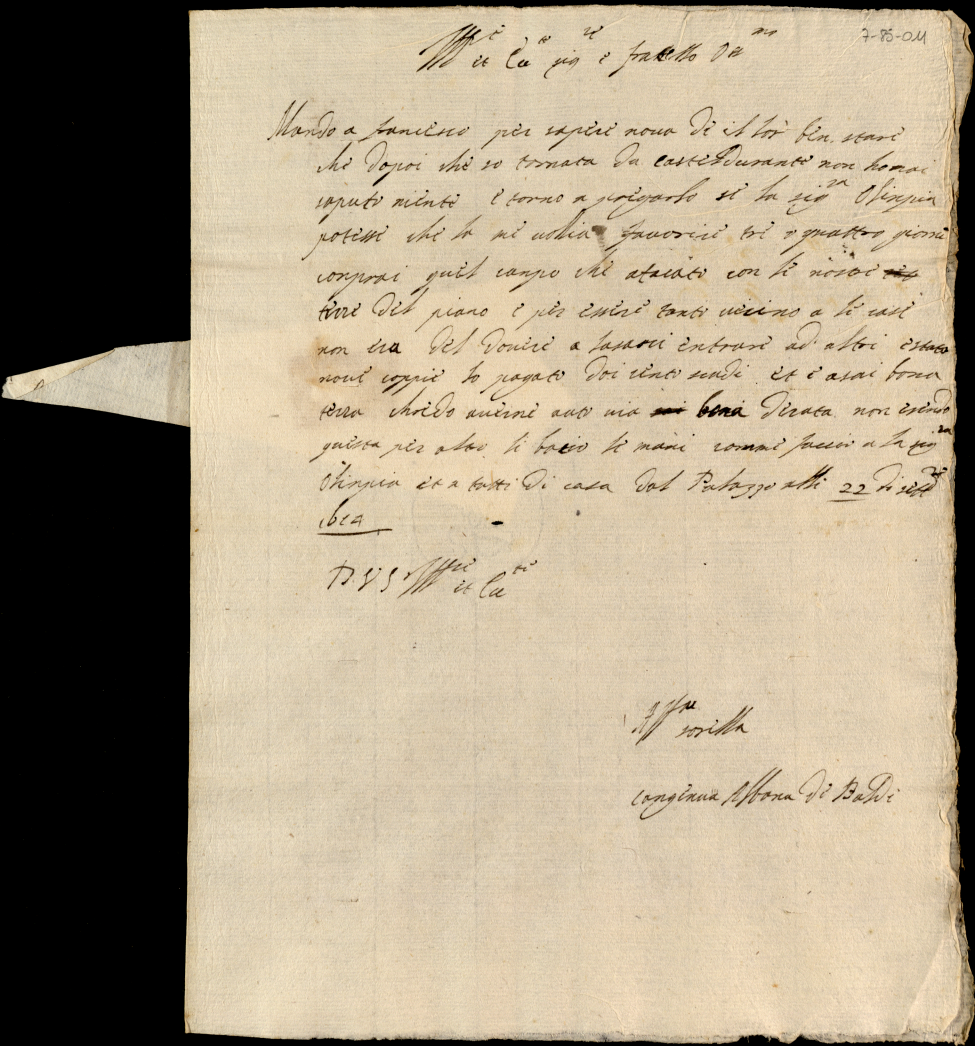 7-85-011
et fratello
Mando a francesco per sapere nova de il lor ben stare
che dopoi che so tornata da castel Durante non ho mai
saputo niente e torno a pregarlo se la sig.ra Olinpia
potesse che la me vollia favorire tre o quattro giorni
conprai quel canpo che atacato con le nostre
terre del piano e per essere tanto vicino a le case
non era del dovere a lasarci entrare ad altri e stato
nove coppie lo pagato doi cento scudi et e asai bona
terra chredo averne auto una bona derata non esendo
questa per altro li bacio le mani comme faccio a la sig.ra
Olinpia et a tutti di casa dal Palazzo alli 22 di
1614
D. V. S. et
sorella
Albana de Baldi